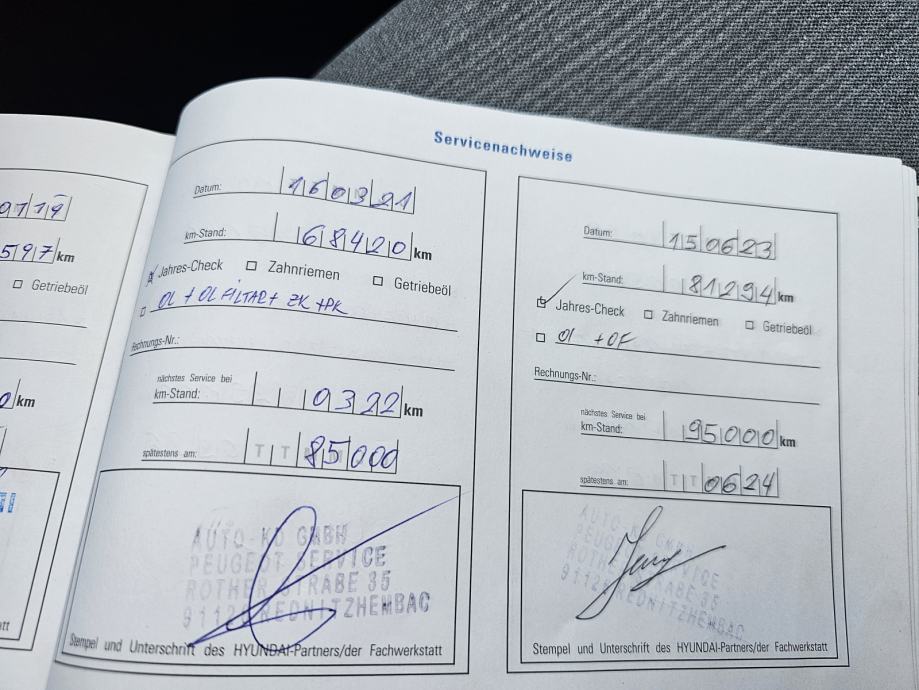 Servicenachweise
0717
597 km
Getriebeöl
0 km
Datum: 160321
km-Stand: 68420 km
Jahres-Check Zahnriemen Getriebeöl
OL + OL FILTAR + ZK + PK
Rechnungs-Nr.:
nächstes Service bei
km-Stand: 0322 km
spätestens am: TT 85000
AUTO-KD GMBH
PEUGEOT SERVICE
ROTHER STRABE 35
9112 REDNITZHEMBAC
Stempel und Unterschrift des HYUNDAI-Partners/der Fachwerkstatt
Datum: 150623
km-Stand: 81294 km
Jahres-Check Zahnriemen Getriebeöl
Ol + OF
Rechnungs-Nr.:
nächstes Service bei
km-Stand: 95000 km
spätestens am: TT 0624
AUTO-KD
PEUGEOT SERVICE
ROTHER STRABE 35
9112 REDNITZHEMBAC
Stempel und Unterschrift des HYUNDAI-Partners/der Fachwerkstatt